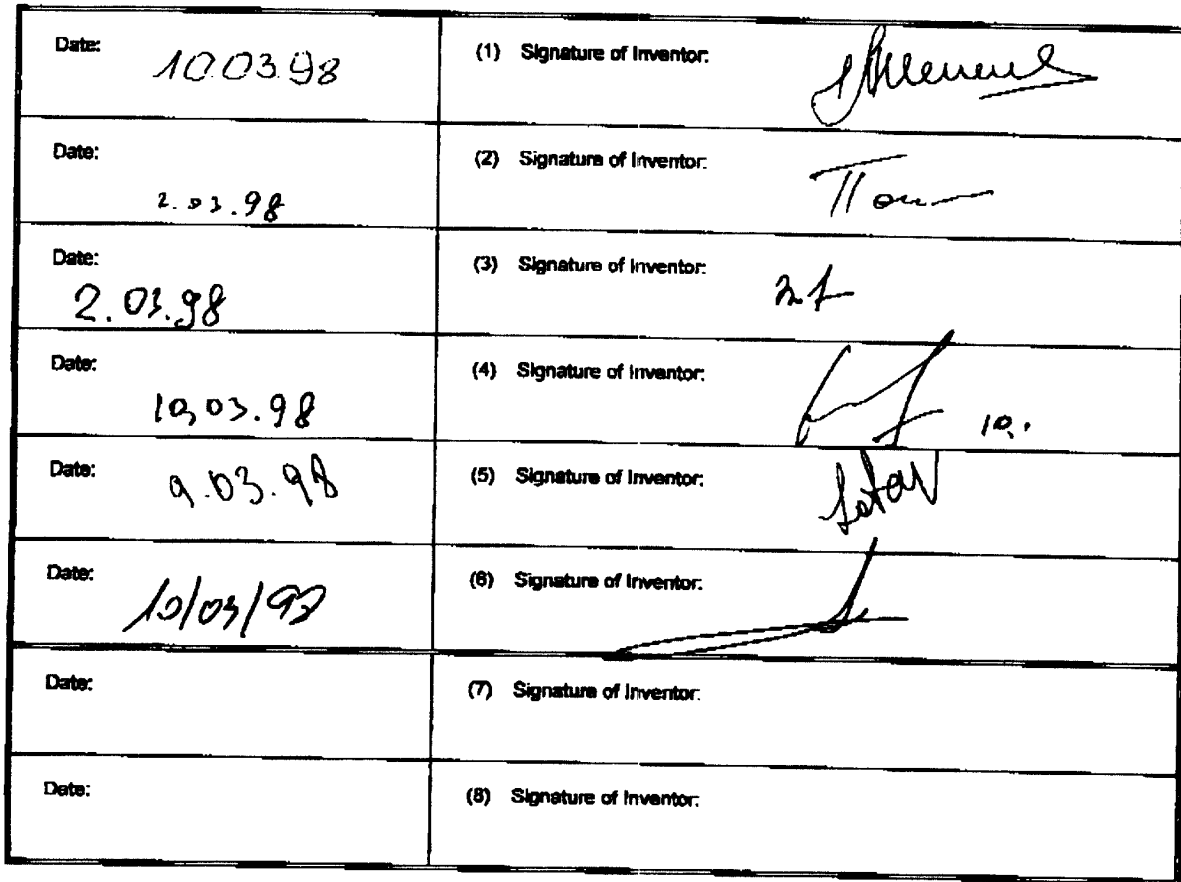 Date: 10.03.98 (1) Signature of Inventor:
Date: 2.03.98 (2) Signature of Inventor:
Date: 2.03.98 (3) Signature of Inventor:
Date: 10,03.98 (4) Signature of Inventor: 10.
Date: 9.03.98 (5) Signature of Inventor:
Date: 10/03/98 (6) Signature of Inventor:
Date: (7) Signature of Inventor:
Date: (8) Signature of Inventor: